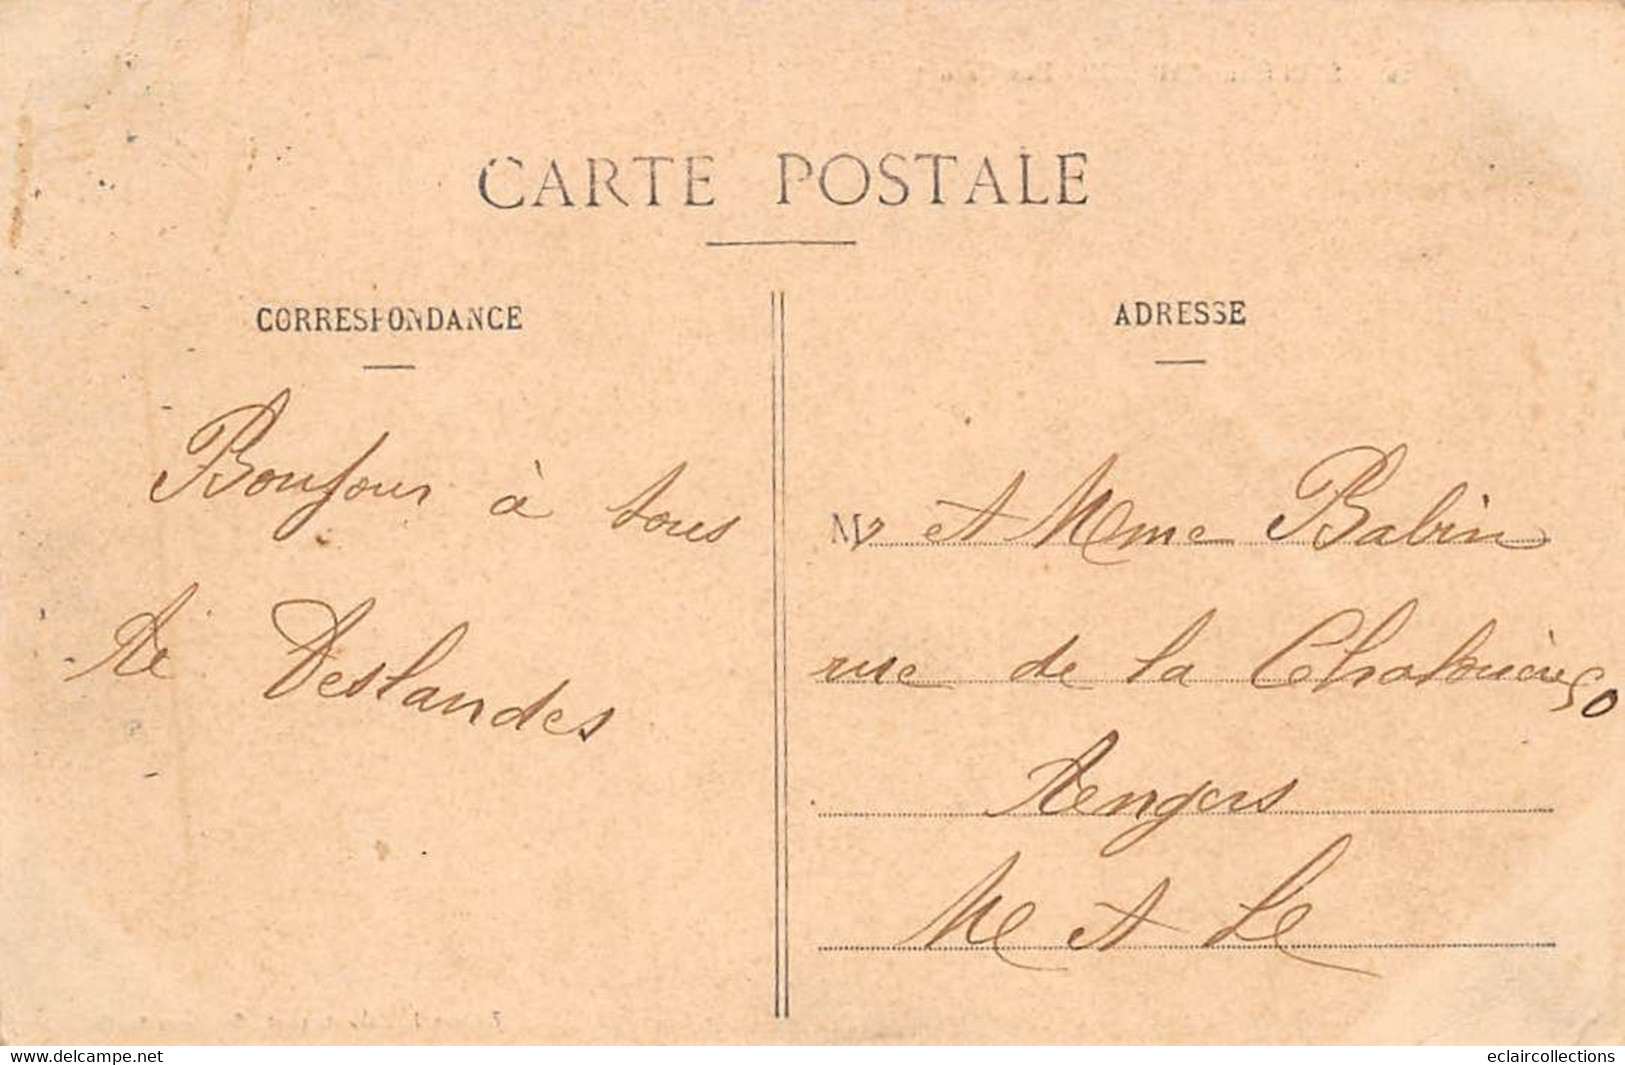 CARTE POSTALE
CORRESPONDANCE
ADRESSE
Bonjour à tous
A Deslandes
Mr et Mme Babin
rue de la Chalouère 50
Angers
M et L
www.delcampe.net
eclaircollections